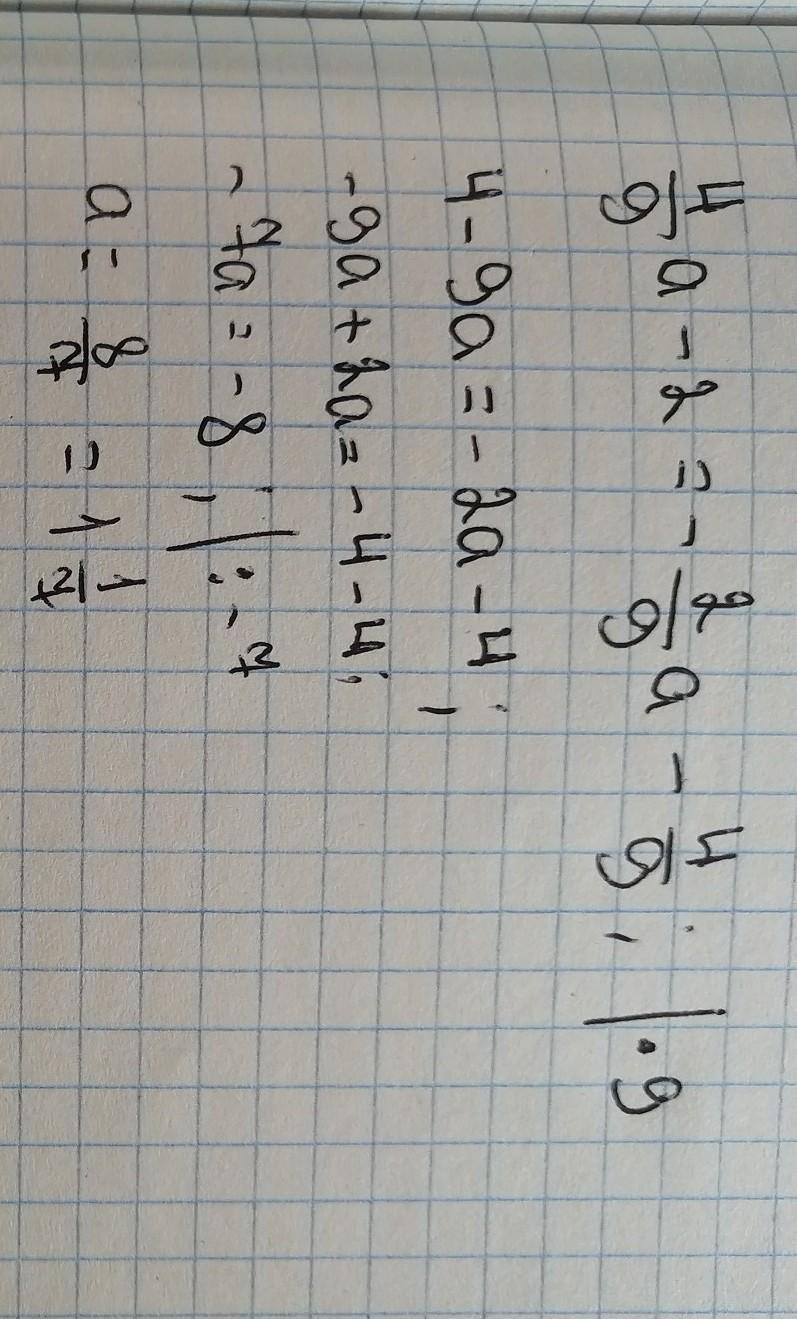 4/9 a - 2 = - 2/9 a - 4/9 ; | · 9
4 - 9a = - 2a - 4 ;
- 9a + 2a = - 4 - 4 ;
- 7a = - 8 ; | : - 7
a = 8/7 = 1 1/7